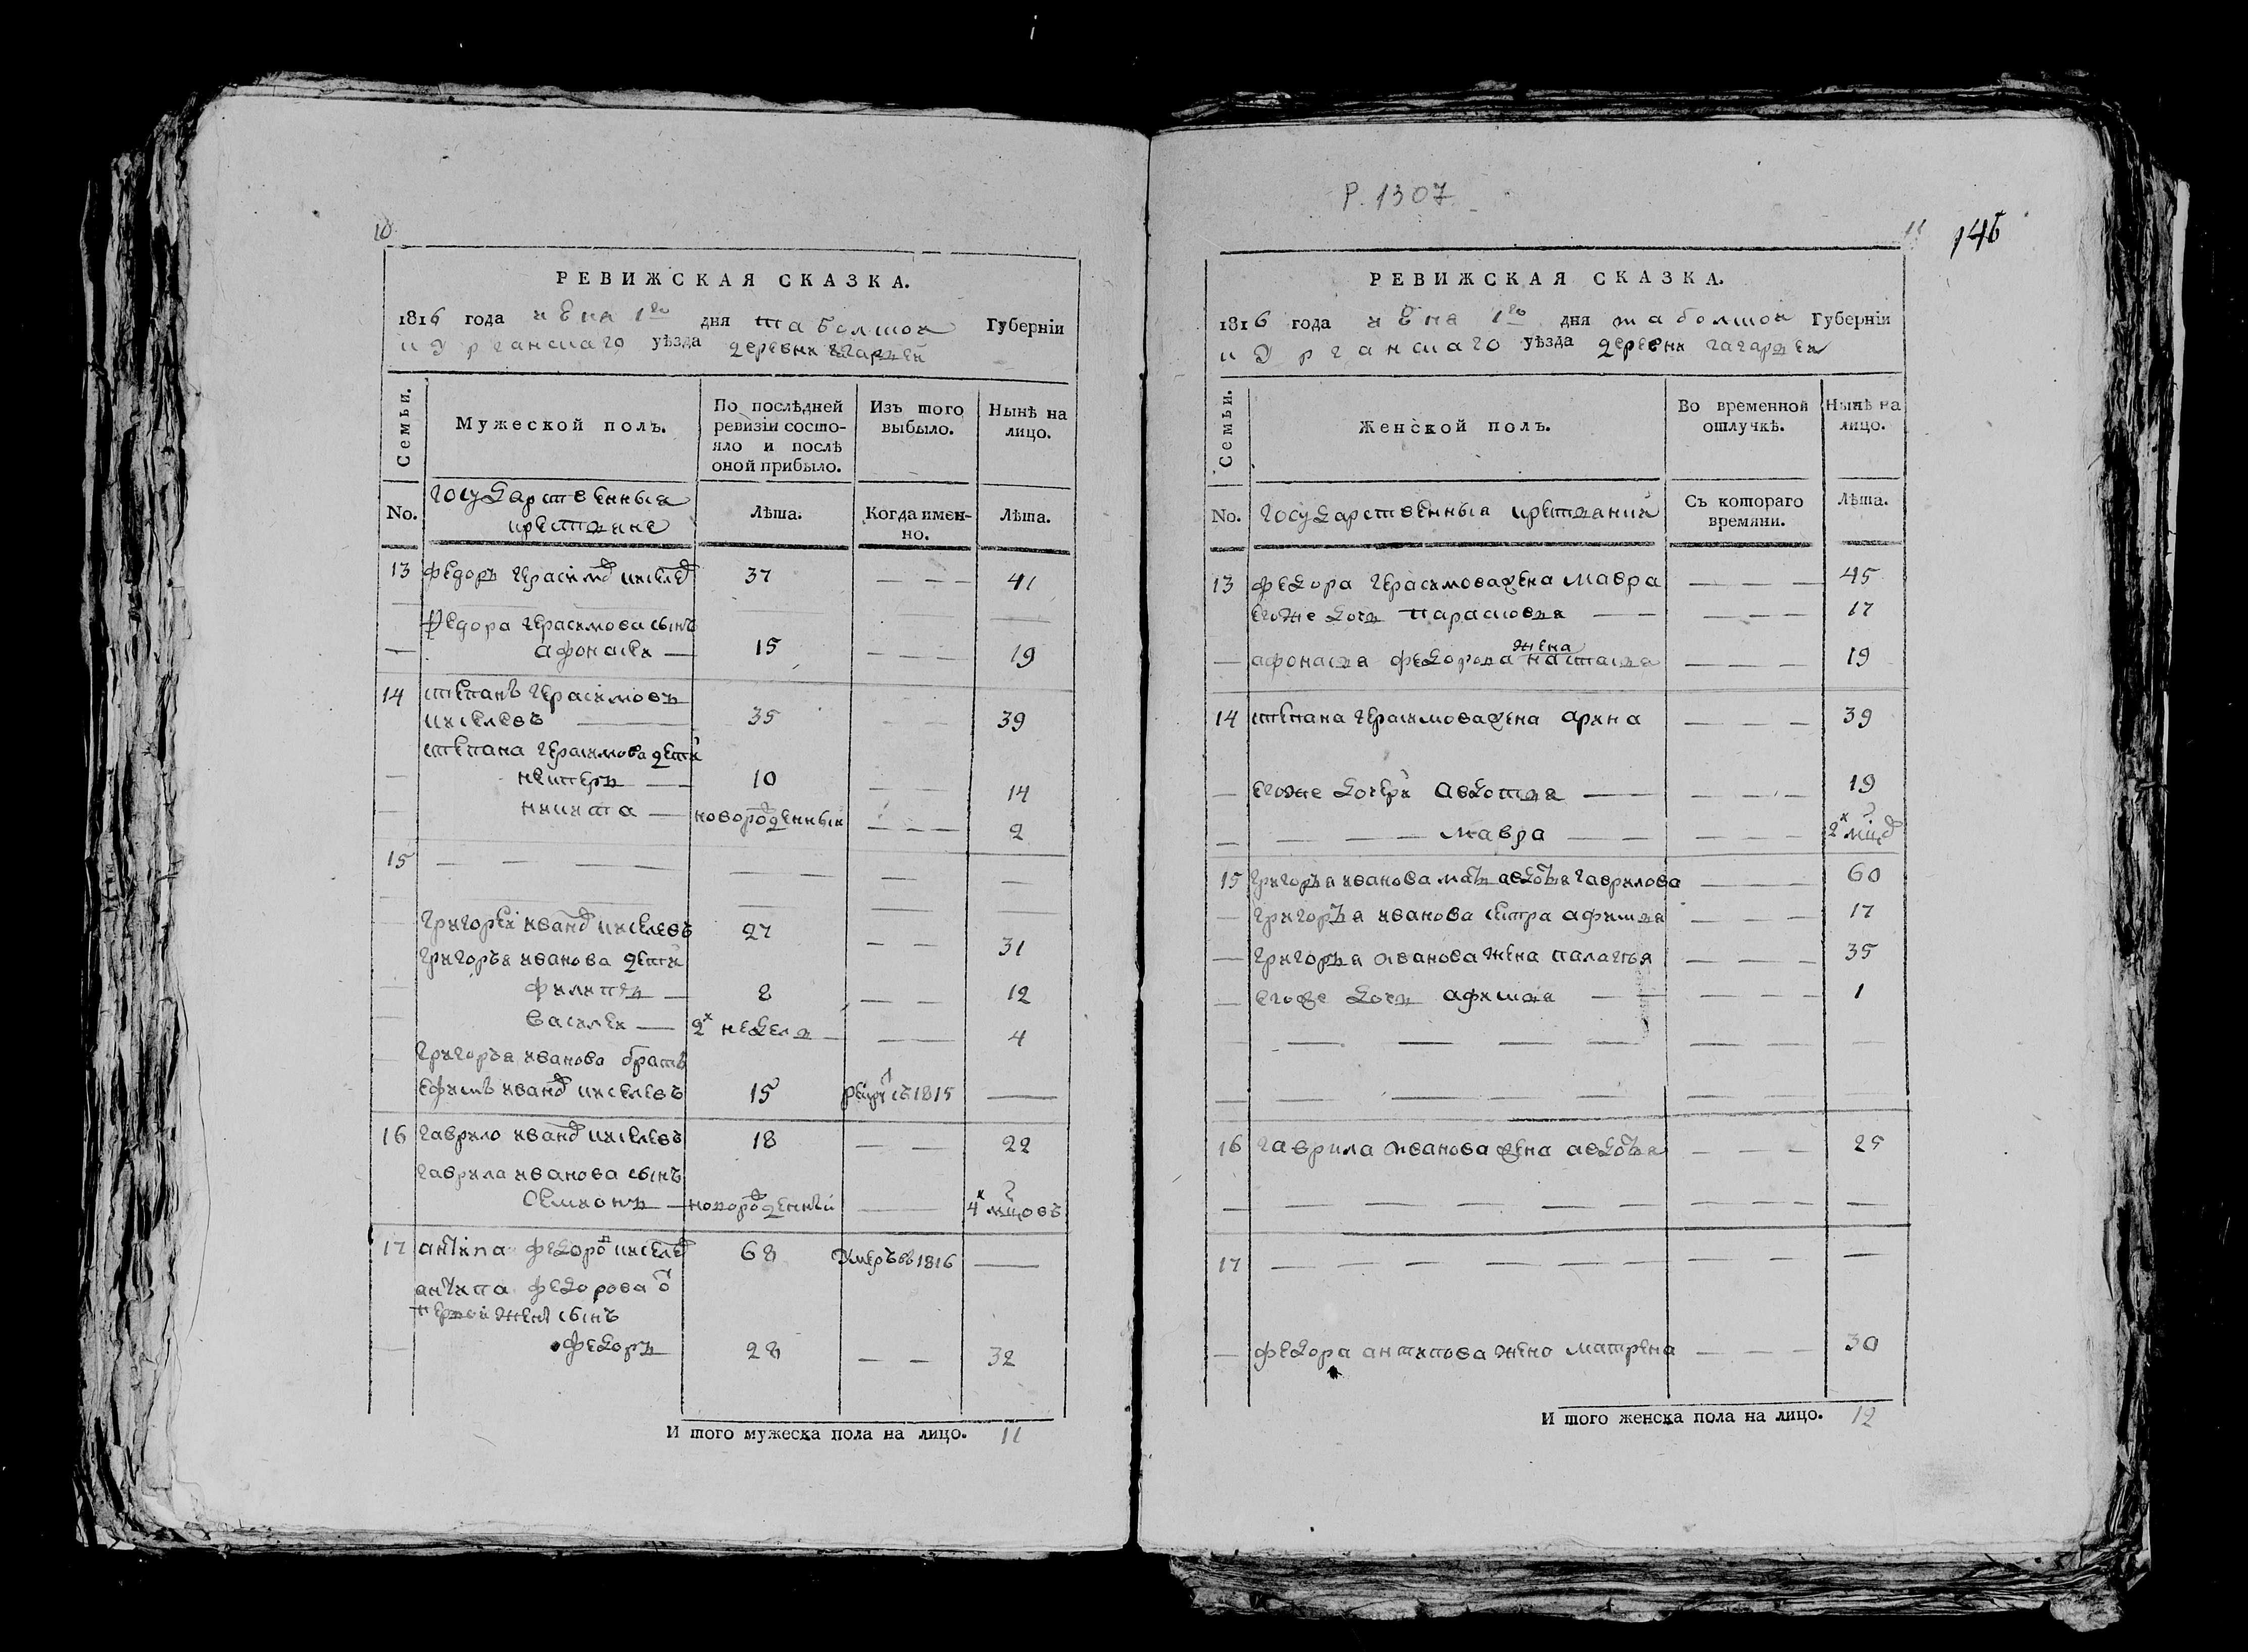 10
РЕВИЖСКАЯ СКАЗКА.
1816 года июня 1го дня таболской Губерніи
курганскаго уѣзда деревни гагарьей
Семьи.
Мужеской полъ.
По послѣдней ревизіи состо-
яло и послѣ
оной прибыло.
Изъ того
выбыло.
Нынѣ на
лицо.
No.
государственныя
крестьяне
Лѣта.
Когда имен-
но.
Лѣта.
13 федоръ герасимов киселев 37 — — — 41
федора герасимова сынъ
афонасеи — 15 — — — 19
14 степанъ герасимовъ
киселевъ 35 — — 39
степана герасимова дети
нестеръ — 10 — — 14
никита — новорожденный — — — 2
15 — — — —
григореи иванов киселевъ 27 — — 31
григорья иванова дети
филипъ — 8 — — 12
василеи — 2х недель — — 4
григорья иванова братъ
ефимъ иванов киселевъ 15 рекру въ 1815 —
16 гаврило иванов киселевъ 18 — — 22
гаврила иванова сынъ
Семионъ — новорожденный — 4х мцовъ
17 антипа федоров киселев 68 Умеръ въ 1816 —
антипа федорова о
первой жены сынъ
федоръ 28 — — 32
И того мужеска пола на лицо. 11
Р. 1307
11
146
РЕВИЖСКАЯ СКАЗКА.
1816 года июня 1го дня таболской Губерніи
курганскаго уѣзда деревни гагарьеи
Семьи.
Женской полъ.
Во временной
отлучкѣ.
Нынѣ на
лицо.
No.
государственныя крестьянки
Съ котораго
времяни.
Лѣта.
13 федора герасимова жена мавра — — — 45
егоже дочь парасковья — — — — 17
жена
— афонасья федорова настасья — — — 19
14 степана герасимова жена арина — — — 39
— егоже дочери авдотья — — — — 19
— — — — мавра — — — — 2х мцов
15 григорья иванова мать авдотья гаврилова — — — 60
— григорья иванова сестра афимья — — — 17
— григорья иванова жена палагья — — — 35
— егоже дочь афимья — — — — 1
16 гаврила иванова жена авдотья — — — 25
17 — — — — — — — — —
— федора антипова жена матрена — — — 30
И того женска пола на лицо. 12